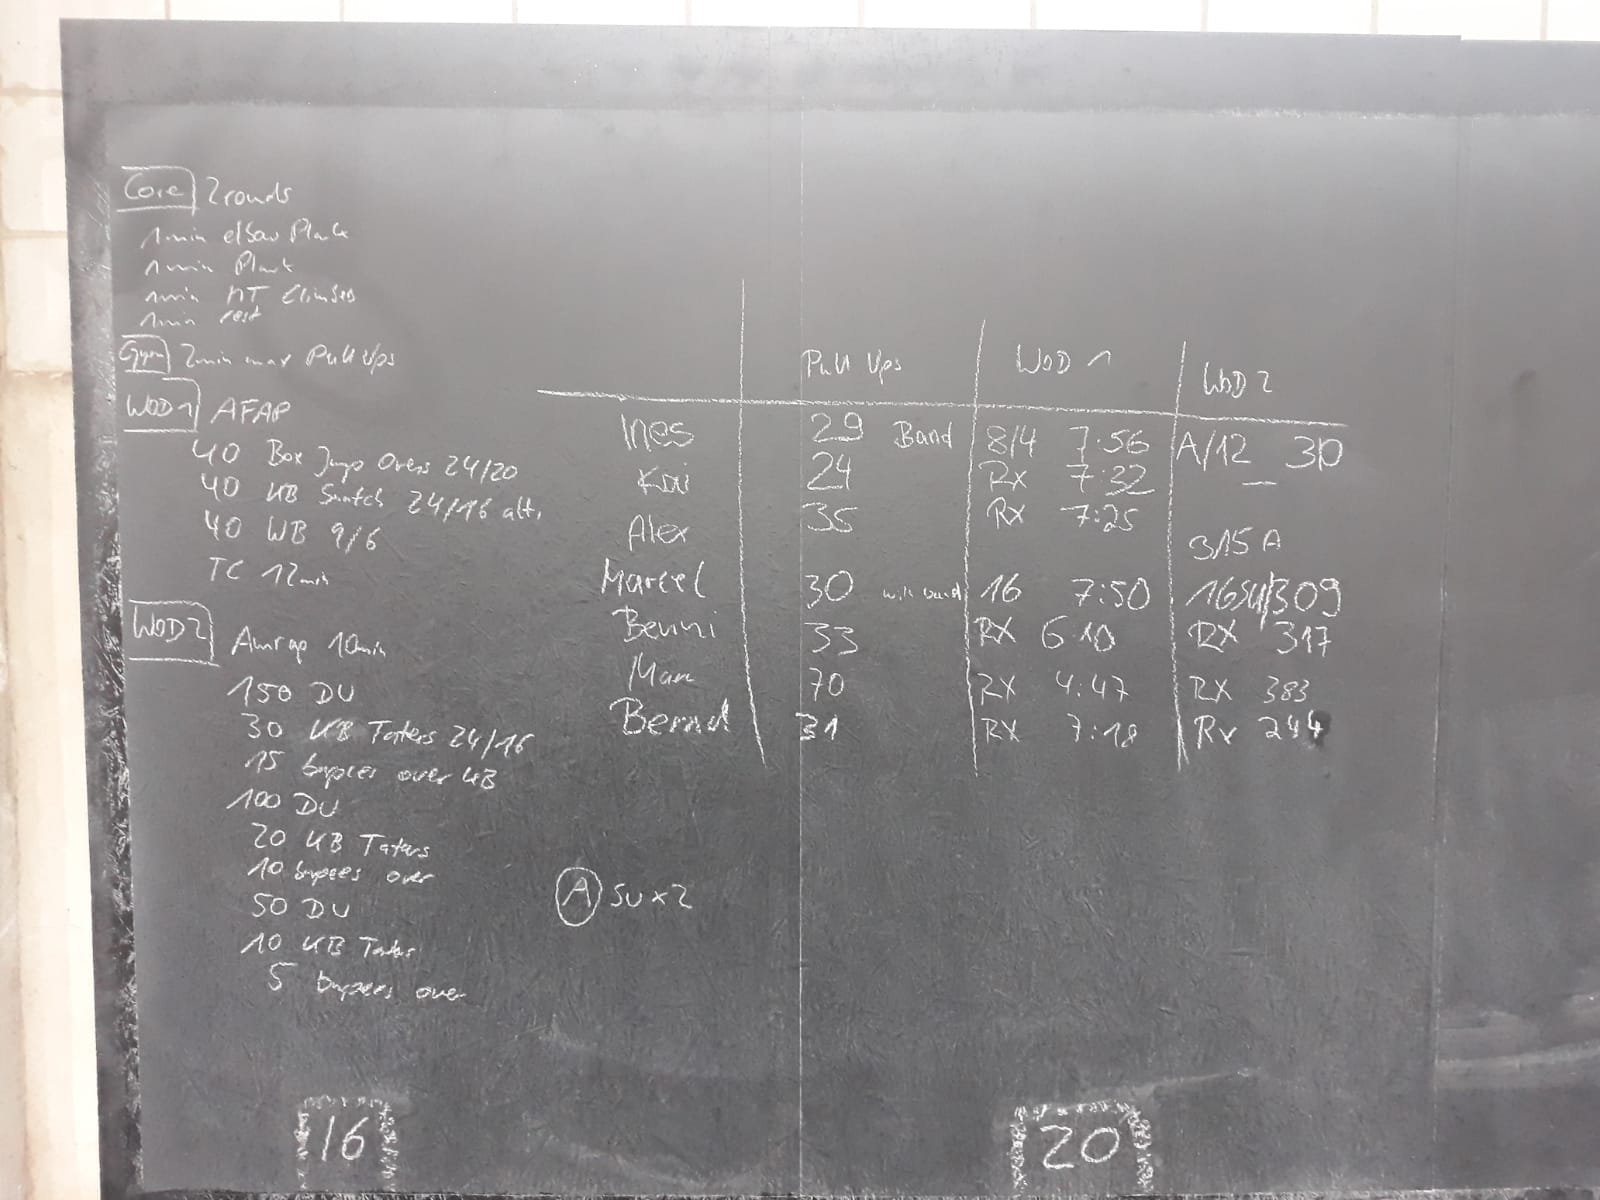 Core 2 rounds
1min elbow Plank
1min Plank
1min MT Climbers
1min rest
Gym 2min max Pull Ups
WOD 1 AFAP
40 Box Jump Overs 24/20
40 KB Snatch 24/16 alt.
40 WB 9/6
TC 12min
WOD 2 Amrap 10min
150 DU
30 KB Taters 24/16
15 burpees over KB
100 DU
20 KB Taters
10 burpees over
50 DU
10 KB Taters
5 burpees over
Pull Ups WOD 1 WOD 2
Ines 29 Band 8/4 7:56 A/12 30
24 Rx 7:32
Alex 35 Rx 7:25 315 A
Marcel 30 with band 16 7:50 16SU/309
Benni 33 RX 6:10 RX 317
70 RX 4:47 RX 383
Bernd 31 RX 7:18 Rx 244
A SU x 2
16
20